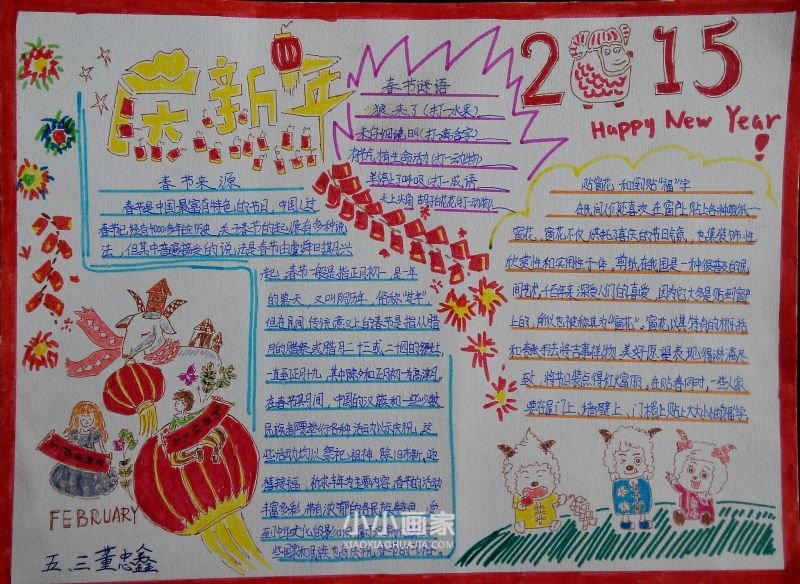 庆新年
春节来源
春节是中国最富有特色的节日，中国人过
春节已经有4000多年的历史，关于春节的起源有多种说
法，但其中普遍接受的说法是春节由虞舜日其月兴
起，春节一般是指正月初一，是一年
的第一天，又叫阴历年，俗称“过年”，
但在民间，传统意义上的春节是指从腊
月的腊祭或腊月二十三或二十四的祭灶，
一直至正月十九，其中除夕和正月初一为高潮。
在春节其月间，中国的汉族和一些少数
民族都要举行各种活动以示庆祝，这
些活动均以祭祀祖神、除旧布新、迎
禧接福、祈求丰年为主要内容，春节的活动
丰富多彩，带有浓郁的各民族特色，受
到中华文化的影响，
春节谜语
狼来了（打一水果）
未仔细说明（打一粤语字）
有节气植生命活动（打一动物）
羊停止了呼吸（打一成语
天上尖角 胡子花花（打一动物）
2015
Happy New Year!
贴窗花和倒贴“福”字
在民间人们还喜欢在窗户上贴上各种剪纸—
窗花，窗花不仅烘托了喜庆的节日气氛，也集装饰性
欣赏性和实用性于一体，剪纸在我国是一种很普及的民
间艺术，千百年来深受人们的喜爱，因为它大多是贴在窗户
上的，所以也被称其为“窗花”。窗花以其特有的概括
和夸张手法将吉事祥物、美好愿望表现得淋漓尽
致，将节日装点得红火富丽，在贴春同时，一些人家
要在屋门上、墙壁上、门楣上贴上大大小小的“福”字
FEBRUARY
五.三董忠鑫
小小画家
XIAOXIAOHUAJIA.COM